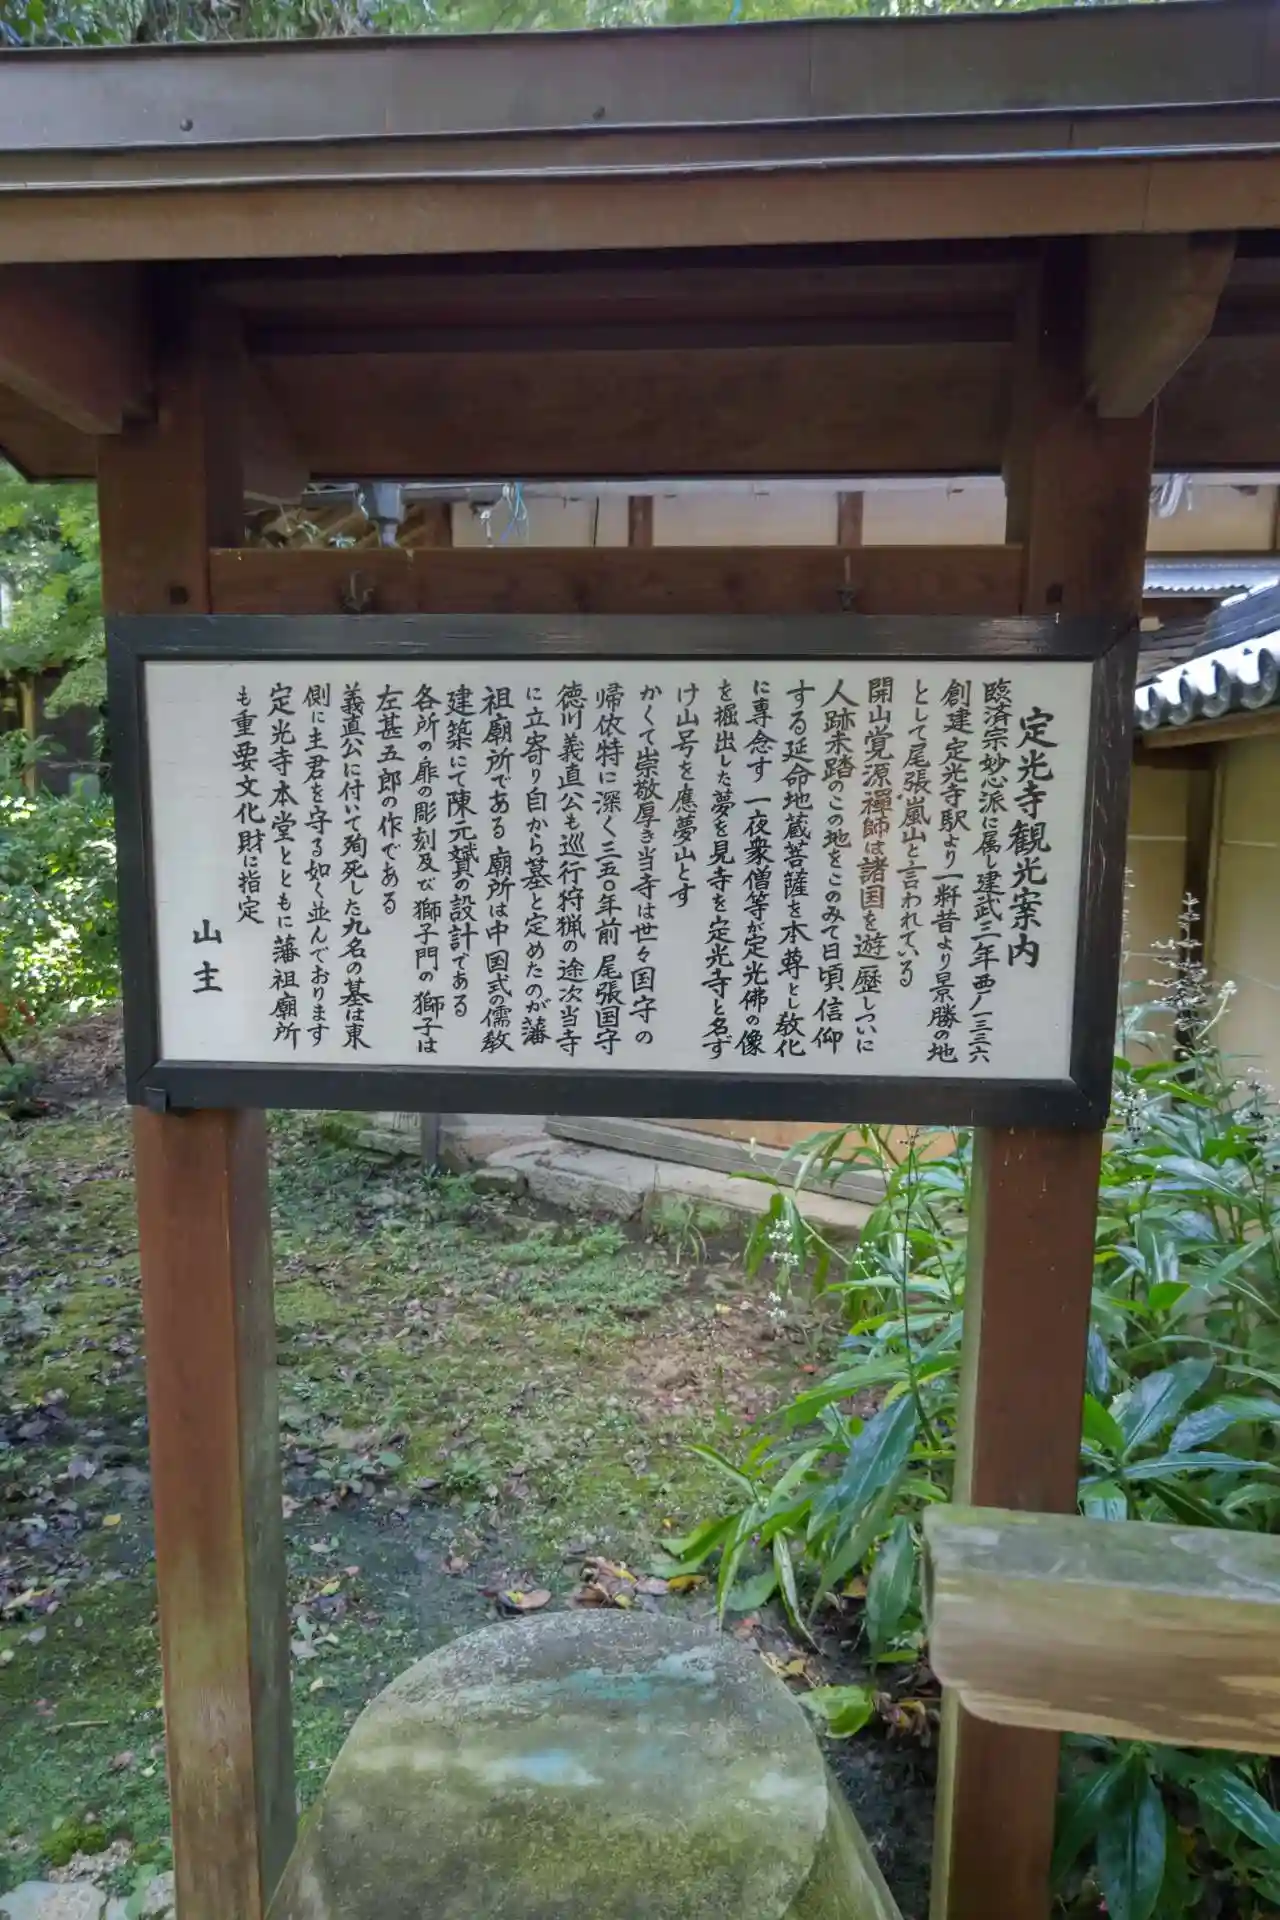 定光寺観光案内
臨済宗妙心派に属し建武三年西ノ一三三六
創建定光寺駅より一粁昔より景勝の地
として尾張嵐山と言われている
開山覚源禪師は諸国を遊歴しついに
人跡未踏のこの地をこのみて日頃信仰
する延命地蔵菩薩を本尊とし教化
に専念す一夜衆僧等が定光佛の像
を堀出した夢を見寺を定光寺と名ず
け山号を應夢山とす
かくて崇敬厚き当寺は世々国守の
帰依特に深く三五〇年前尾張国守
徳川義直公も巡行狩猟の途次当寺
に立寄り自から墓と定めたのが藩
祖廟所である廟所は中国式の儒教
建築にて陳元贇の設計である
各所の扉の彫刻及び獅子門の獅子は
左甚五郎の作である
義直公に付いて殉死した九名の墓は東
側に主君を守る如く並んでおります
定光寺本堂とともに藩祖廟所
も重要文化財に指定
山主